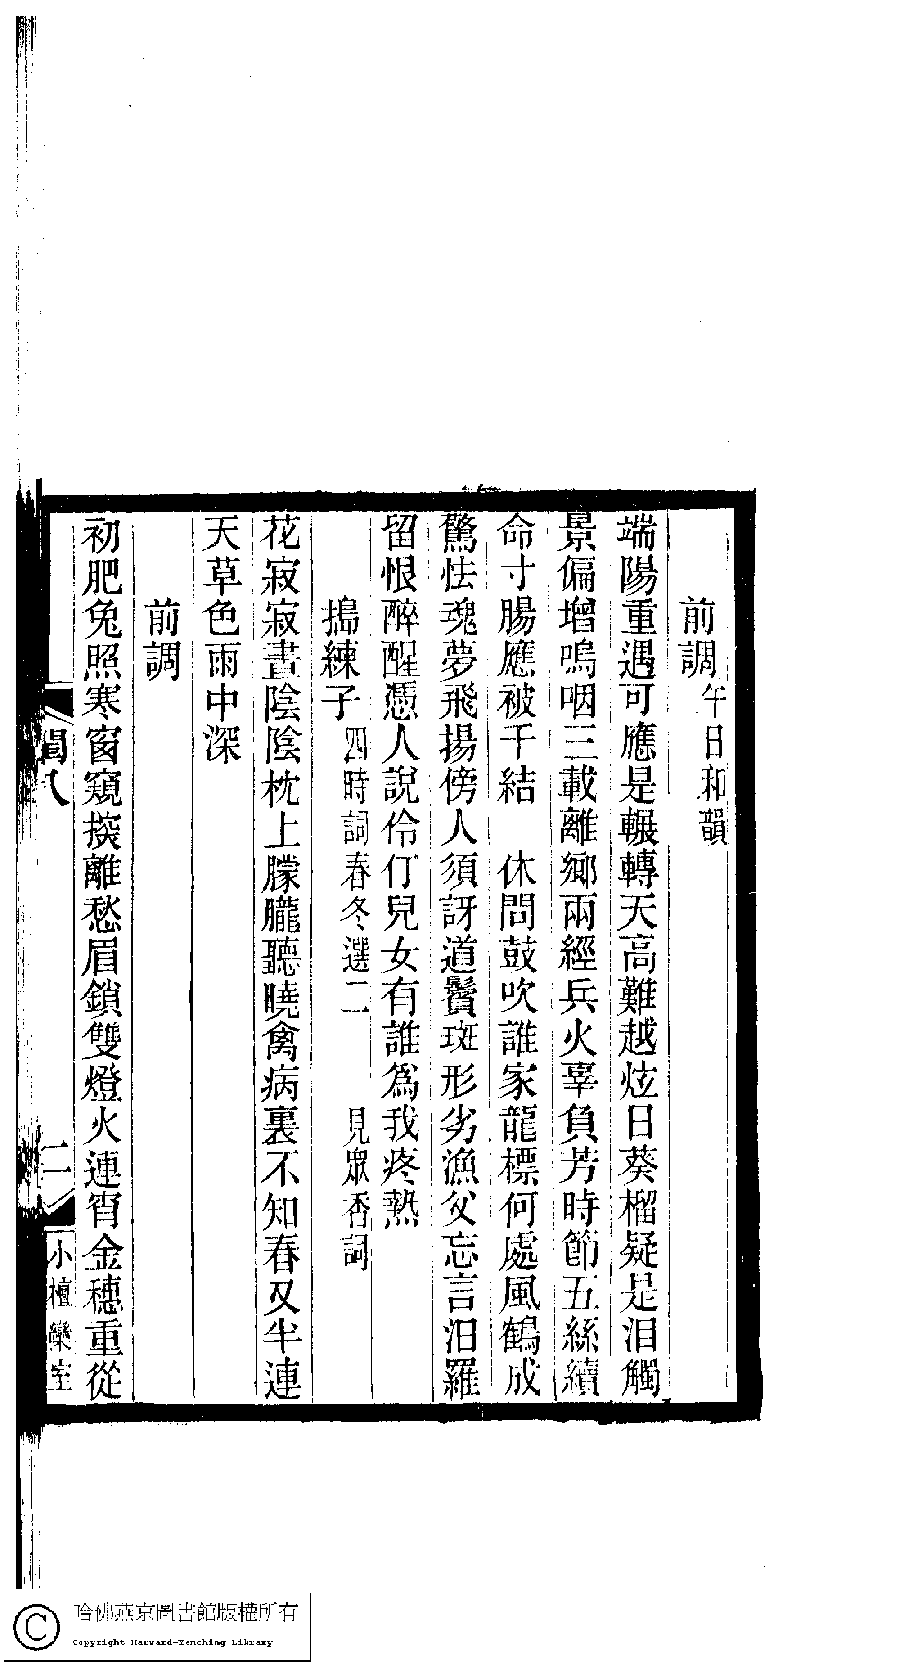 前調午日和韻
端陽重遇可應是輾轉天高難越炫日葵榴疑是泪觸
景偏增嗚咽三載離鄉兩經兵火辜負芳時節五絲續
命寸腸應被千結　休問鼓吹誰家龍標何處風鶴成
驚怯魂夢飛揚傍人須訝道鬢斑形劣漁父忘言汨羅
留恨醉醒憑人說伶仃兒女有誰爲我疼熱
搗練子四時詞春冬選二　見眾香詞
花寂寂晝陰陰枕上朦朧聽曉禽病裏不知春又半連
天草色雨中深
前調
初肥兔照寒窗窺探離愁眉鎖雙燈火連宵金穗重從
閨八
二
小檀欒室
哈佛燕京圖書館版權所有
Copyright Harvard-Yenching Library